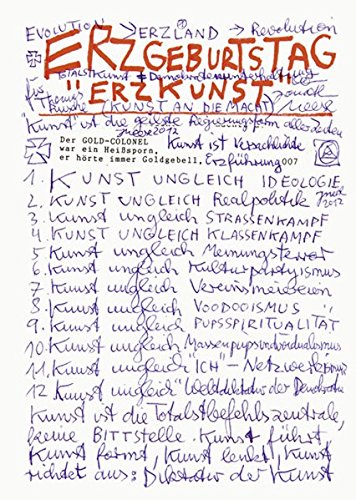 EVOLUTION → ERZLAND → Revolution
ERZGEBURTSTAG
"ERZKUNST"
TOTALSTKunst ≠
(KUNST AN DIE MACHT)
"Kunst" ist die geilste Regierungsform aller Zeiten
Meese 2012
Der GOLD-COLONEL
Kunst ist Verschlußte
war ein Heißsporn,
er hörte immer Goldgebell. Erzführung 007
1. KUNST UNGLEICH IDEOLOGIE
2. KUNST UNGLEICH Realpolitik
2012
3. Kunst ungleich STRASSENKAMPF
4. KUNST UNGLEICH KLASSENKAMPF
5. Kunst ungleich Meinungsterror
6. Kunst ungleich Kulturpartyismus
7. Kunst ungleich Vereinsmeiereien
8. Kunst ungleich VOODOOISMUS
9. Kunst ungleich PUPSSPIRITUALITÄT
10. Kunst ungleich Massenpupsindividualismus
11. Kunst ungleich "ICH"-Netzwerke
12 Kunst ungleich Weltdiktatur der Demokratie
Kunst ist die Totalstbefehlszentrale,
keine BITTSTELLE. Kunst führt,
Kunst formt, Kunst lenkt, Kunst
richtet aus: Diktatur der Kunst